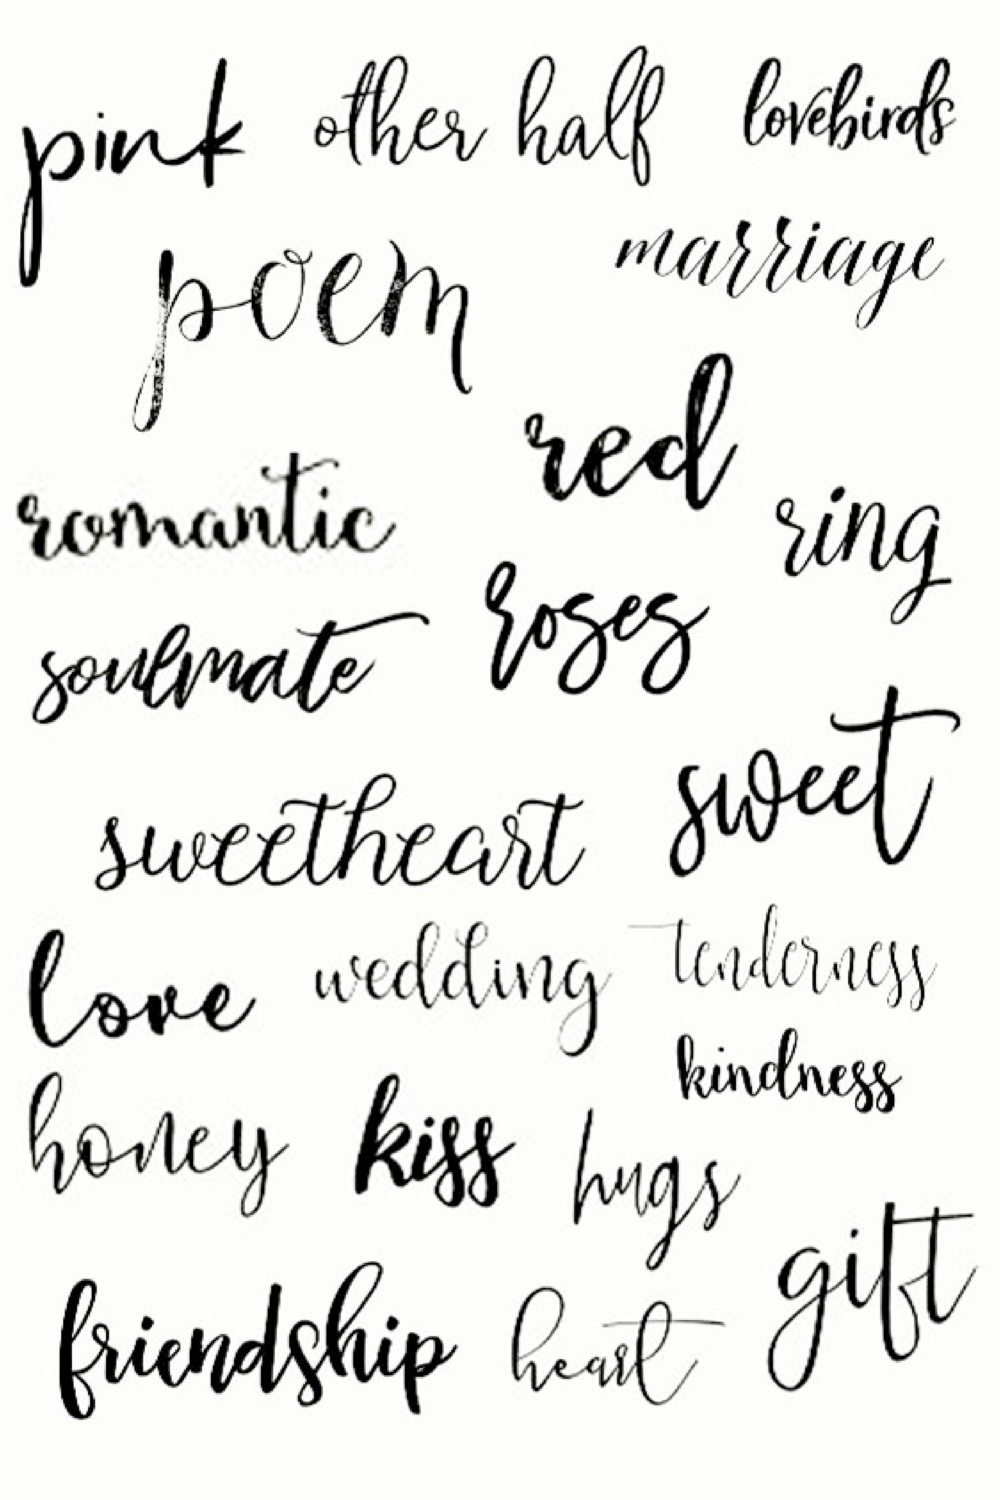 pink other half lovebirds
poem marriage
red
romantic ring
roses
soulmate
sweet
sweetheart
love wedding tenderness
kindness
honey kiss hugs
gift
friendship heart